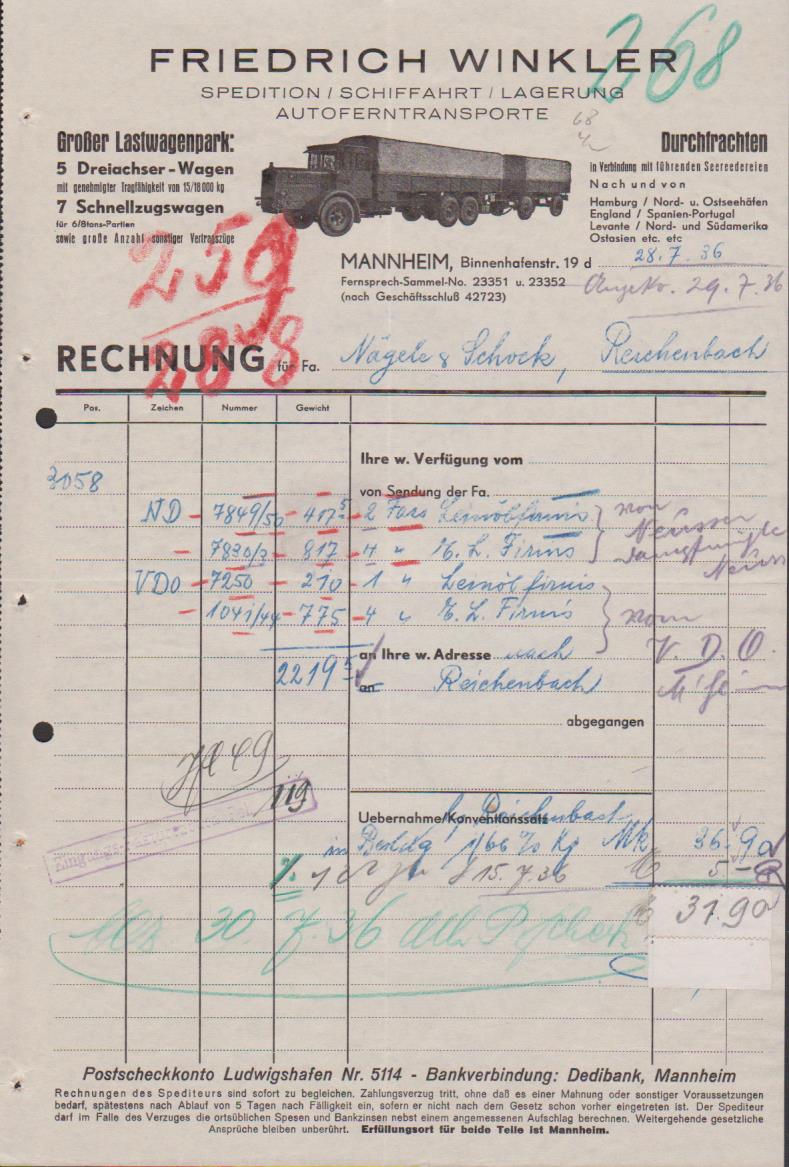 268
FRIEDRICH WINKLER
SPEDITION / SCHIFFAHRT / LAGERUNG
AUTOFERNTRANSPORTE
68
Großer Lastwagenpark:
5 Dreiachser-Wagen
mit genehmigter Tragfähigkeit von 15/18 000 kg
7 Schnellzugswagen
für 6/8tons-Partien
sowie große Anzahl sonstiger Vertragszüge
Durchfrachten
in Verbindung mit führenden Seereedereien
Nach und von
Hamburg / Nord- u. Ostseehäfen
England / Spanien-Portugal
Levante / Nord- und Südamerika
Ostasien etc. etc
259
MANNHEIM, Binnenhafenstr. 19 d 28.7.36
Fernsprech-Sammel-No. 23351 u. 23352
(nach Geschäftsschluß 42723)
29.7.36
28 8
RECHNUNG für Fa. Nägele & Schock, Reichenbach
Pos. Zeichen Nummer Gewicht
Ihre w. Verfügung vom
3058
von Sendung der Fa.
ND - 7849/50 - 417⁵ - 2 Fass Leinölfirnis von
- 7830/3 - 817 - 4 " E. L. Firnis
VDO - 7250 - 210 - 1 " Leinölfirnis
- 1041/44 - 775 - 4 " E. L. Firnis vom
an Ihre w. Adresse nach V. D. O.
2219⁵ an Reichenbach
abgegangen
49
119
Uebernahme/Konventionssatz
Reichenbach
1.66 % Kg Mk 36.90
15.7.36 5 -
31.90
30.7.36
Postscheckkonto Ludwigshafen Nr. 5114 - Bankverbindung: Dedibank, Mannheim
Rechnungen des Spediteurs sind sofort zu begleichen. Zahlungsverzug tritt, ohne daß es einer Mahnung oder sonstiger Voraussetzungen
bedarf, spätestens nach Ablauf von 5 Tagen nach Fälligkeit ein, sofern er nicht nach dem Gesetz schon vorher eingetreten ist. Der Spediteur
darf im Falle des Verzuges die ortsüblichen Spesen und Bankzinsen nebst einem angemessenen Aufschlag berechnen. Weitergehende gesetzliche
Ansprüche bleiben unberührt. Erfüllungsort für beide Teile ist Mannheim.